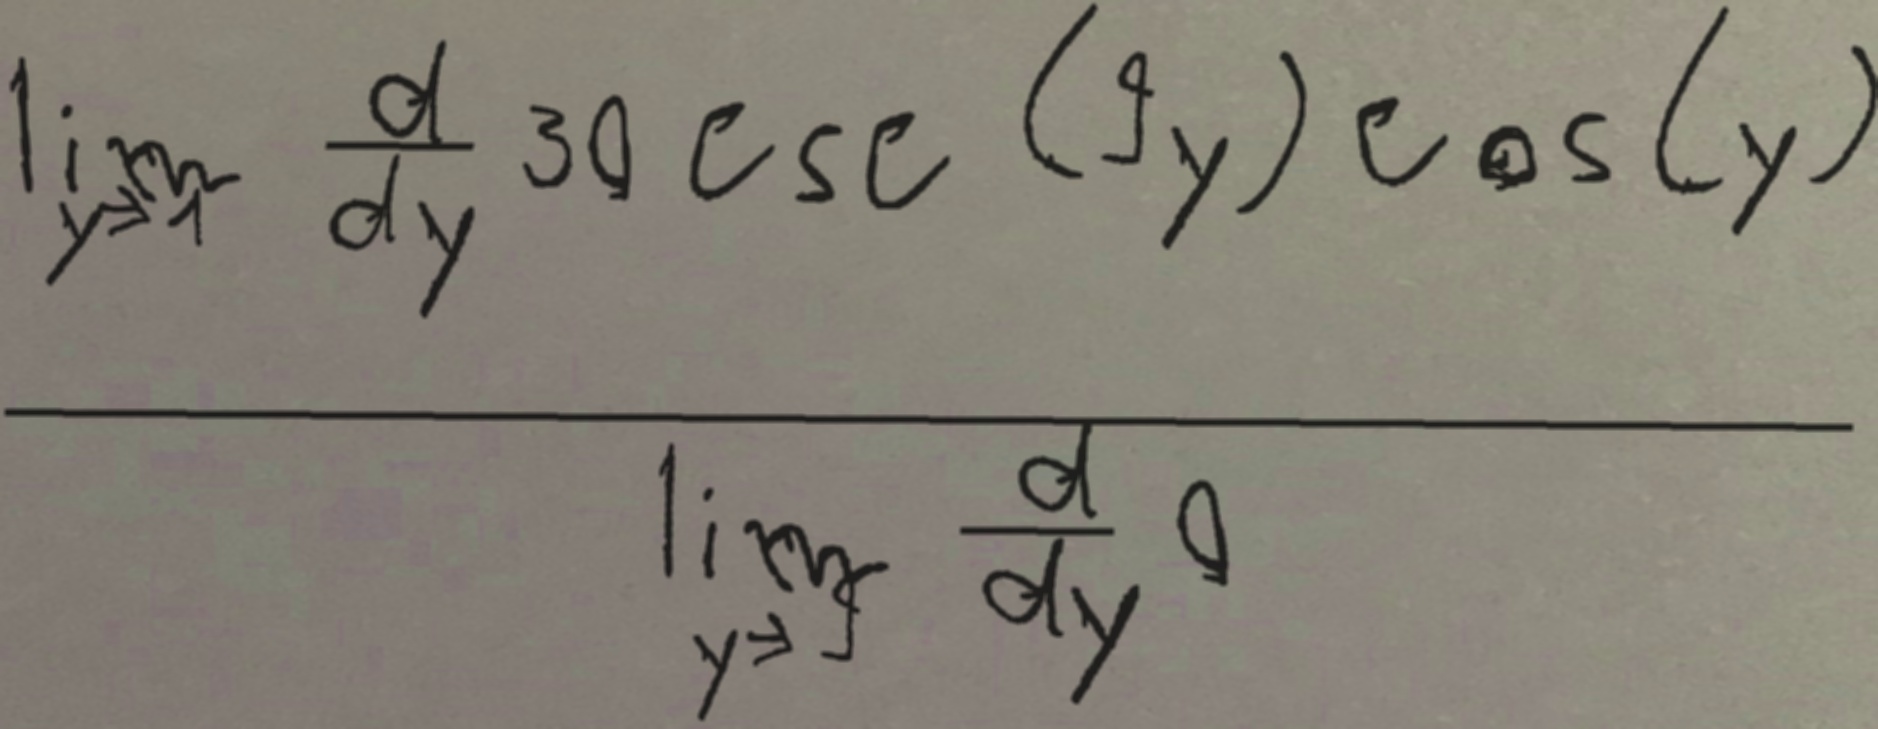 \frac{\lim_{y \to 1} \frac{d}{dy} 30 \csc(9y) \cos(y)}{\lim_{y \to 9} \frac{d}{dy} 0}